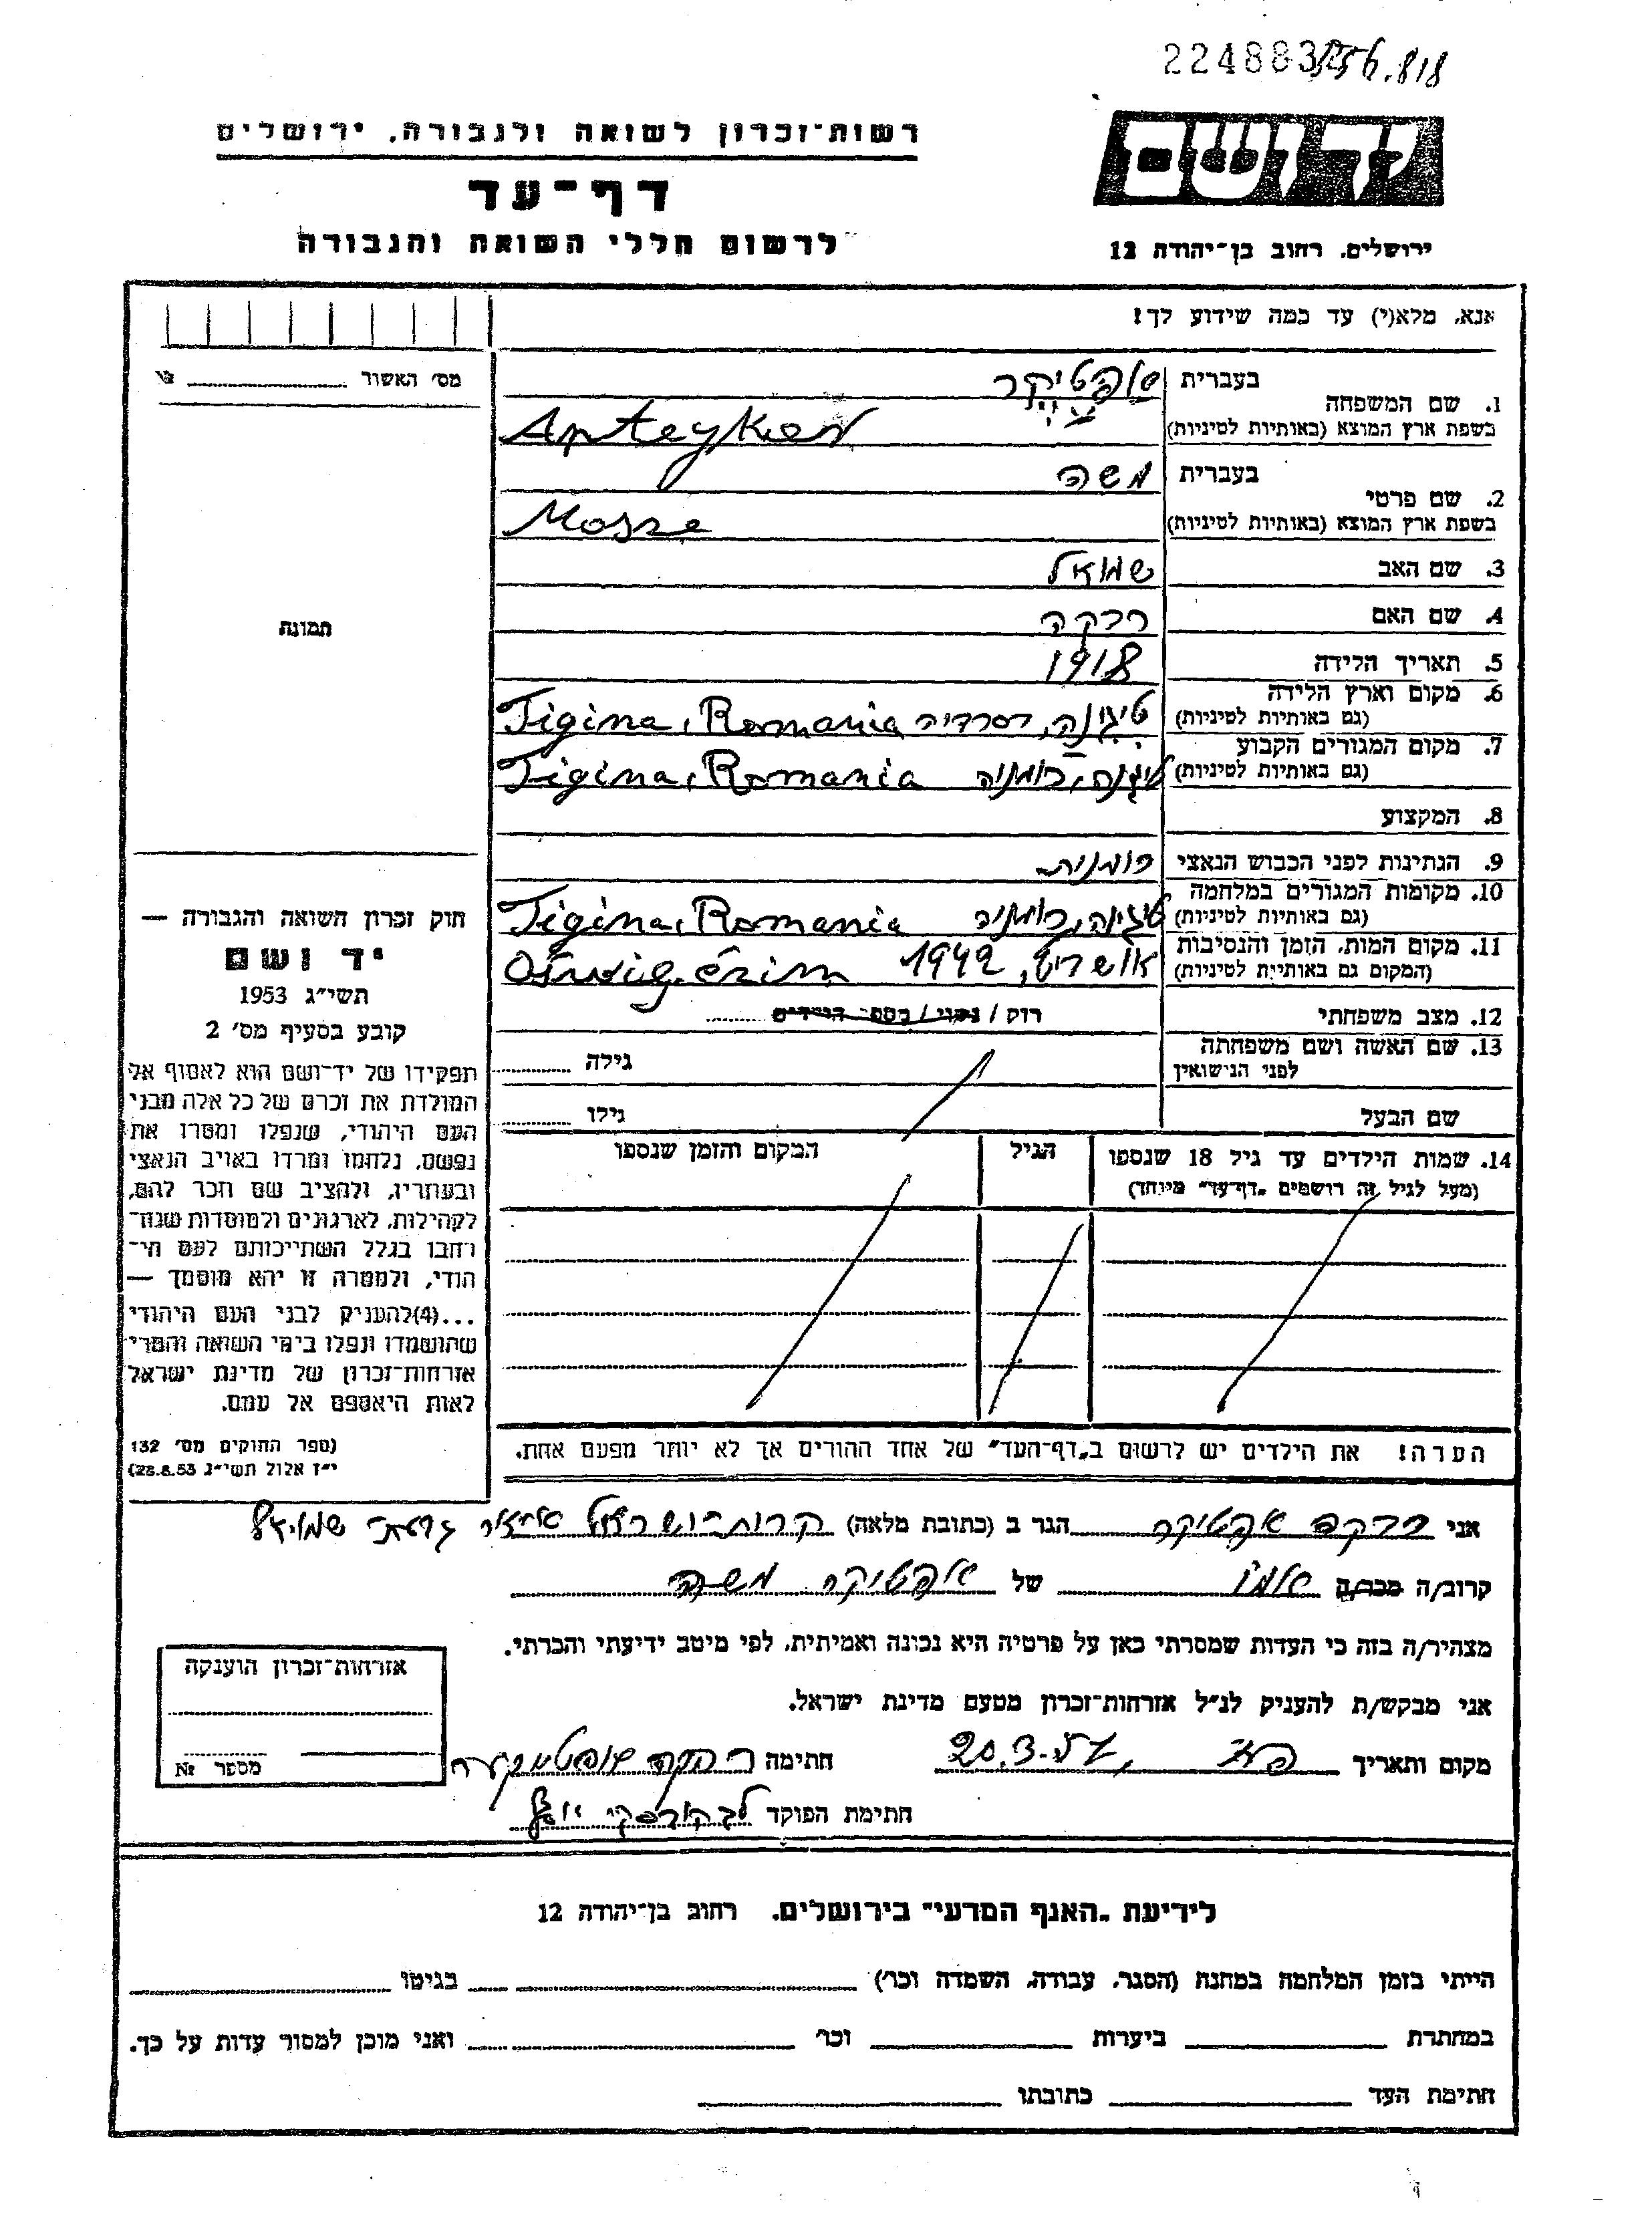 2248832
556.818
יד ושם
רשות־זכרון לשואה ולגבורה, ירושלים
דף־עד
לרשום חללי השואה והגבורה
ירושלים, רחוב בן־יהודה 12
אנא, מלא(י) עד כמה שידוע לך!
מס' האשור
№
תמונה
1. שם המשפחה
בעברית אפטיקר
בשפת ארץ המוצא (באותיות לטיניות) Apteyker
2. שם פרטי
בעברית משה
בשפת ארץ המוצא (באותיות לטיניות) Mosze
3. שם האב שמואל
4. שם האם רבקה
5. תאריך הלידה 1918
6. מקום וארץ הלידה
(גם באותיות לטיניות) טיגינה, בסרביה Tigina, Romania
7. מקום המגורים הקבוע
(גם באותיות לטיניות) טיגינה, רומניה Tigina, Romania
8. המקצוע
9. הנתינות לפני הכבוש הנאצי רומנית
10. מקומות המגורים במלחמה
(גם באותיות לטיניות) טיגינה, רומניה Tigina, Romania
11. מקום המות, הזמן והנסיבות
(המקום גם באותיות לטיניות) אושויץ, 1942
12. מצב משפחתי רוק / נשוי / מספר הילדים
13. שם האשה ושם משפחתה
לפני הנישואין
גילה
שם הבעל
גילו
14. שמות הילדים עד גיל 18 שנספו
(מעל לגיל זה רושמים „דף־עד" מיוחד)
הגיל
המקום והזמן שנספו
הערה! את הילדים יש לרשום ב„דף־העד" של אחד ההורים אך לא יותר מפעם אחת.
חוק זכרון השואה והגבורה —
יד ושם
תשי"ג 1953
קובע בסעיף מס' 2
תפקידו של יד־ושם הוא לאסוף אל
המולדת את זכרם של כל אלה מבני
העם היהודי, שנפלו ומסרו את
נפשם, נלחמו ומרדו באויב הנאצי
ובעוזריו, ולהציב שם וזכר להם,
לקהילות, לארגונים ולמוסדות שנח־
רבו בגלל השתייכותם לעם הי־
הודי, ולמטרה זו יהא מוסמך —
...(4) להעניק לבני העם היהודי
שהושמדו ונפלו בימי השואה והמרי
אזרחות־זכרון של מדינת ישראל
לאות היאספם אל עמם.
(ספר החוקים מס' 132
י"ז אלול תשי"ג 28.8.53)
אני רבקה אפטיקר הגר ב (כתובת מלאה) קרית ישראל
קרוב/ה מכר/ה אמו של אפטיקר משה
מצהיר/ה בזה כי העדות שמסרתי כאן על פרטיה היא נכונה ואמיתית, לפי מיטב ידיעתי והכרתי.
אני מבקש/ת להעניק לנ"ל אזרחות־זכרון מטעם מדינת ישראל.
מקום ותאריך 20.3.57 חתימה
חתימת הפוקד
אזרחות־זכרון הוענקה
מספר №
לידיעת „האגף המדעי" בירושלים, רחוב בן־יהודה 12
הייתי בזמן המלחמה במחנה (הסגר, עבודה, השמדה וכו') בגיטו
במחתרת ביערות וכו' ואני מוכן למסור עדות על כך.
חתימת העד כתובתו